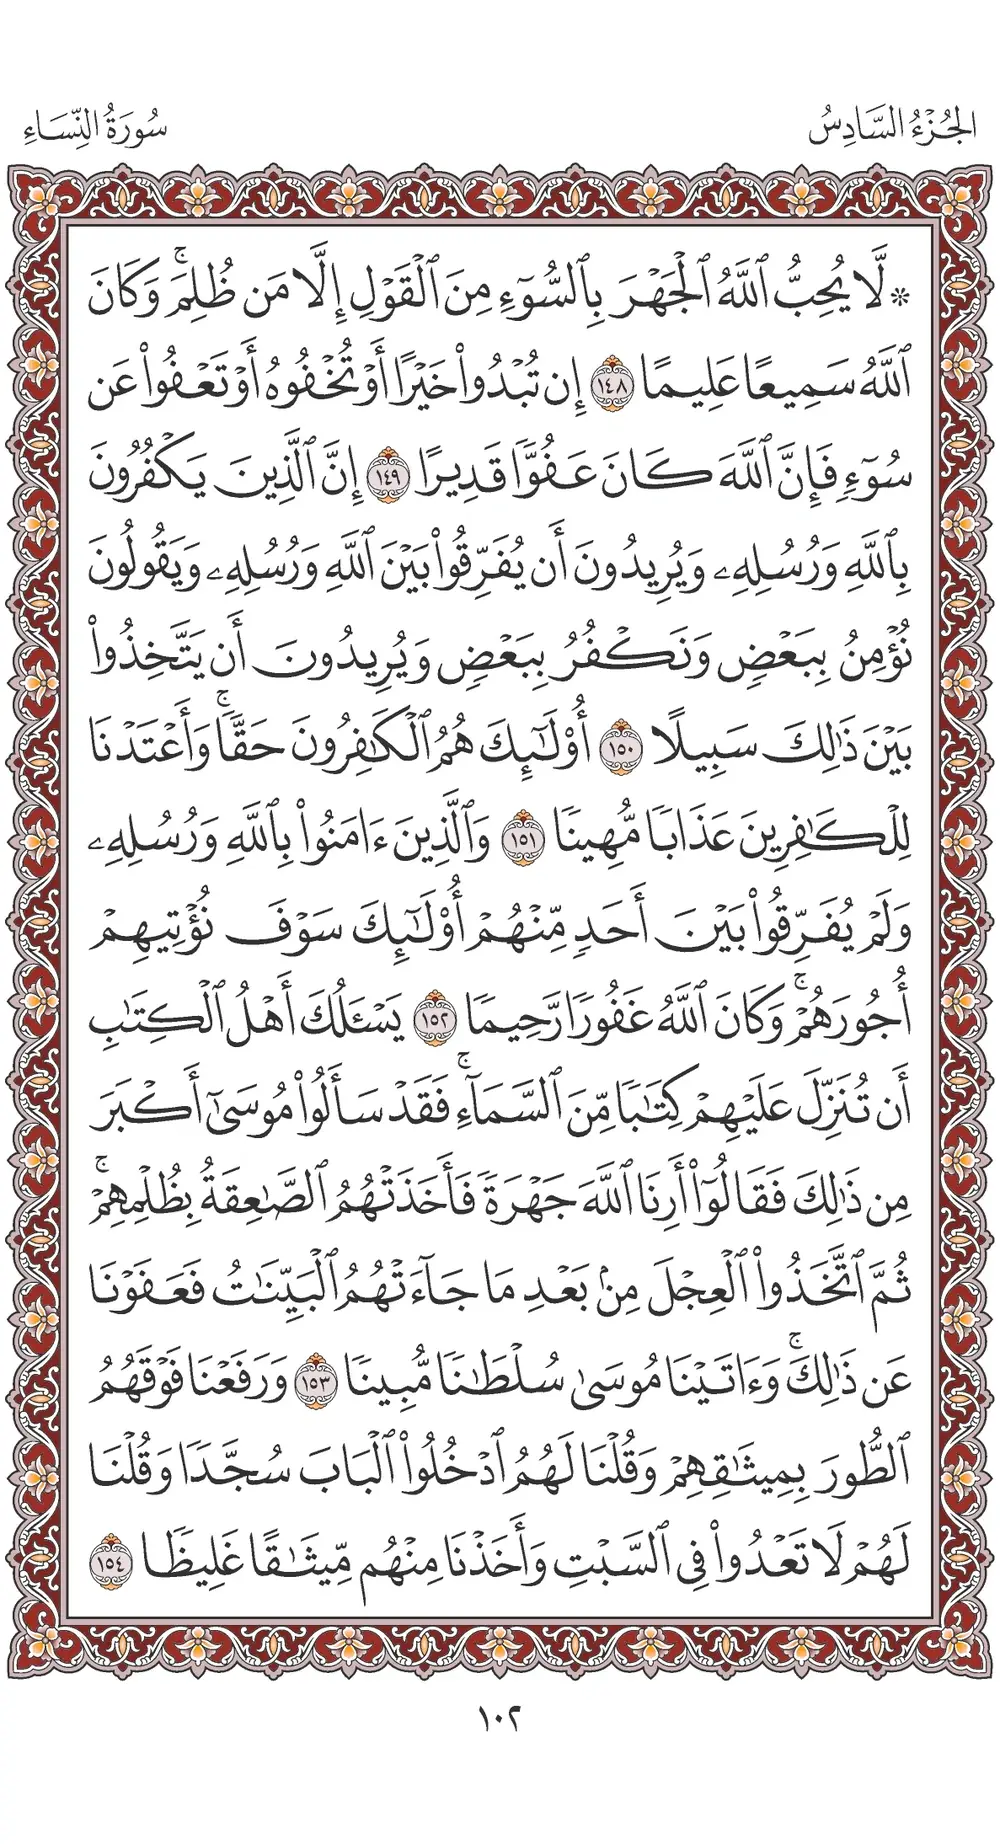 الجُزْءُ السَّادِسُ
سُورَةُ النِّسَاءِ
۞ لَّا يُحِبُّ ٱللَّهُ ٱلْجَهْرَ بِٱلسُّوٓءِ مِنَ ٱلْقَوْلِ إِلَّا مَن ظُلِمَۚ وَكَانَ
ٱللَّهُ سَمِيعًا عَلِيمًا ١٤٨ إِن تُبْدُوا۟ خَيْرًا أَوْ تُخْفُوهُ أَوْ تَعْفُوا۟ عَن
سُوٓءٍ فَإِنَّ ٱللَّهَ كَانَ عَفُوًّا قَدِيرًا ١٤٩ إِنَّ ٱلَّذِينَ يَكْفُرُونَ
بِٱللَّهِ وَرُسُلِهِۦ وَيُرِيدُونَ أَن يُفَرِّقُوا۟ بَيْنَ ٱللَّهِ وَرُسُلِهِۦ وَيَقُولُونَ
نُؤْمِنُ بِبَعْضٍ وَنَكْفُرُ بِبَعْضٍ وَيُرِيدُونَ أَن يَتَّخِذُوا۟
بَيْنَ ذَٰلِكَ سَبِيلًا ١٥٠ أُو۟لَـٰٓئِكَ هُمُ ٱلْكَـٰفِرُونَ حَقًّاۚ وَأَعْتَدْنَا
لِلْكَـٰفِرِينَ عَذَابًا مُّهِينًا ١٥١ وَٱلَّذِينَ ءَامَنُوا۟ بِٱللَّهِ وَرُسُلِهِۦ
وَلَمْ يُفَرِّقُوا۟ بَيْنَ أَحَدٍ مِّنْهُمْ أُو۟لَـٰٓئِكَ سَوْفَ نُؤْتِيهِمْ
أُجُورَهُمْۚ وَكَانَ ٱللَّهُ غَفُورًا رَّحِيمًا ١٥٢ يَسْـَٔلُكَ أَهْلُ ٱلْكِتَـٰبِ
أَن تُنَزِّلَ عَلَيْهِمْ كِتَـٰبًا مِّنَ ٱلسَّمَآءِۚ فَقَدْ سَأَلُوا۟ مُوسَىٰٓ أَكْبَرَ
مِن ذَٰلِكَ فَقَالُوٓا۟ أَرِنَا ٱللَّهَ جَهْرَةً فَأَخَذَتْهُمُ ٱلصَّـٰعِقَةُ بِظُلْمِهِمْۚ
ثُمَّ ٱتَّخَذُوا۟ ٱلْعِجْلَ مِنۢ بَعْدِ مَا جَآءَتْهُمُ ٱلْبَيِّنَـٰتُ فَعَفَوْنَا
عَن ذَٰلِكَۚ وَءَاتَيْنَا مُوسَىٰ سُلْطَـٰنًا مُّبِينًا ١٥٣ وَرَفَعْنَا فَوْقَهُمُ
ٱلطُّورَ بِمِيثَـٰقِهِمْ وَقُلْنَا لَهُمُ ٱدْخُلُوا۟ ٱلْبَابَ سُجَّدًا وَقُلْنَا
لَهُمْ لَا تَعْدُوا۟ فِى ٱلسَّبْتِ وَأَخَذْنَا مِنْهُم مِّيثَـٰقًا غَلِيظًا ١٥٤
١٠٢